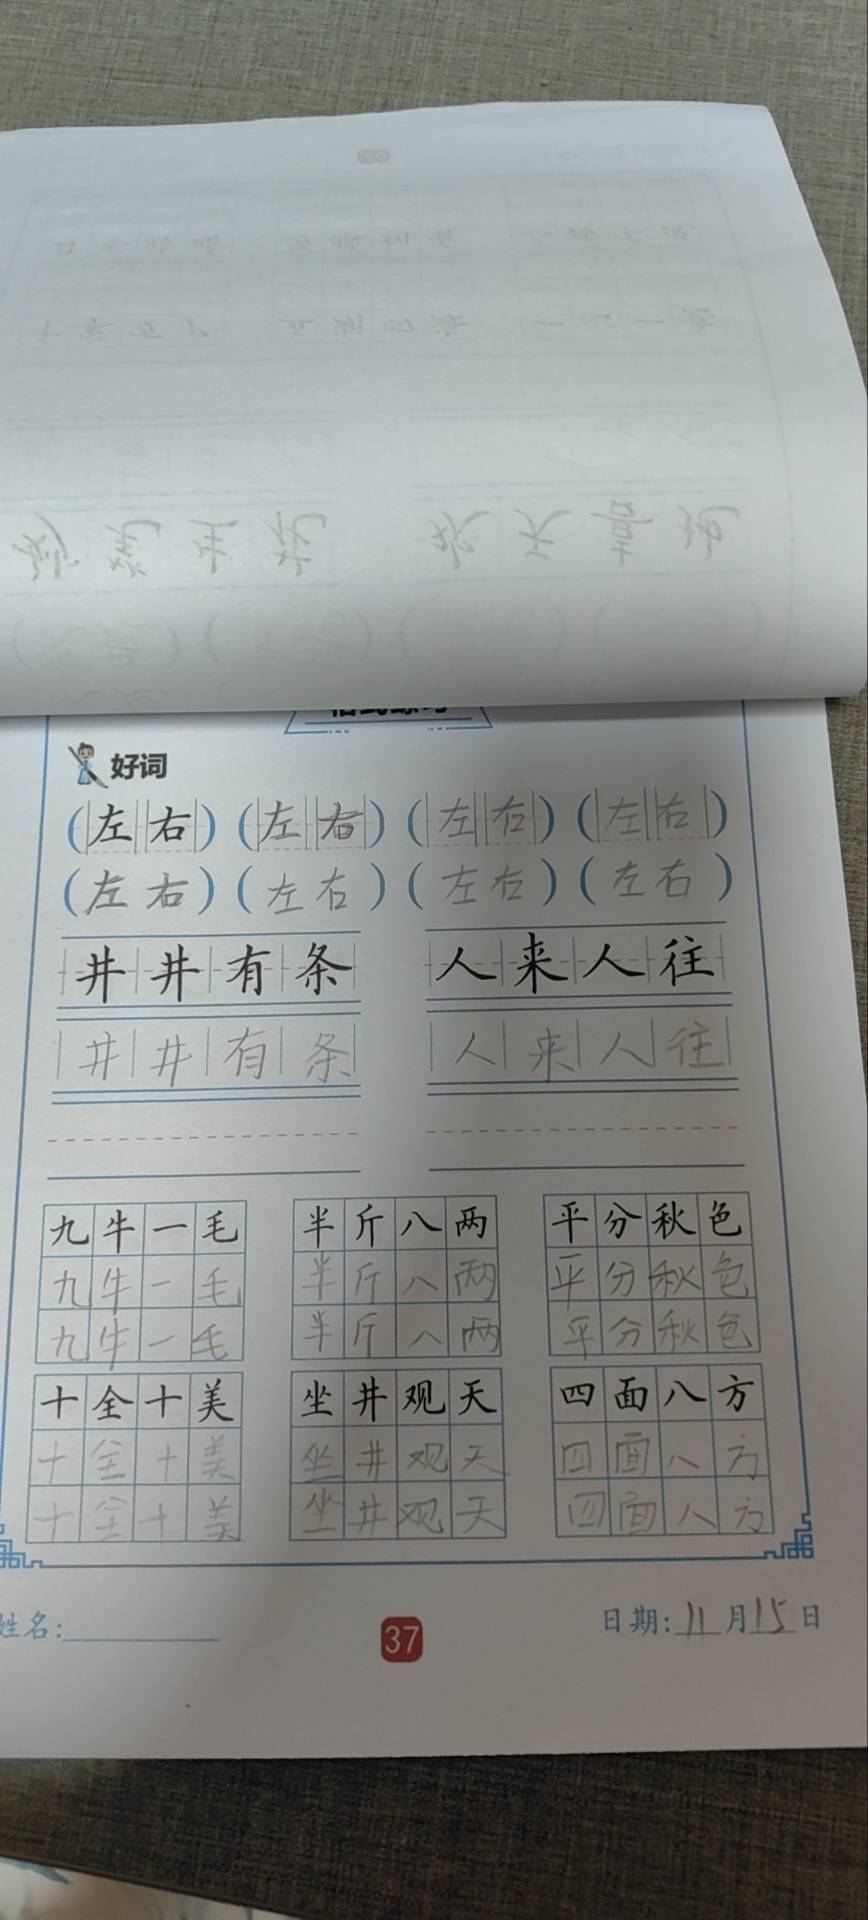 好词
(左右)(左右)(左右)(左右)
(左右)(左右)(左右)(左右)
井井有条 人来人往
井井有条 人来人往
九牛一毛 半斤八两 平分秋色
九牛一毛 半斤八两 平分秋色
九牛一毛 半斤八两 平分秋色
十全十美 坐井观天 四面八方
十全十美 坐井观天 四面八方
十全十美 坐井观天 四面八方
姓名: 37 日期:11月15日